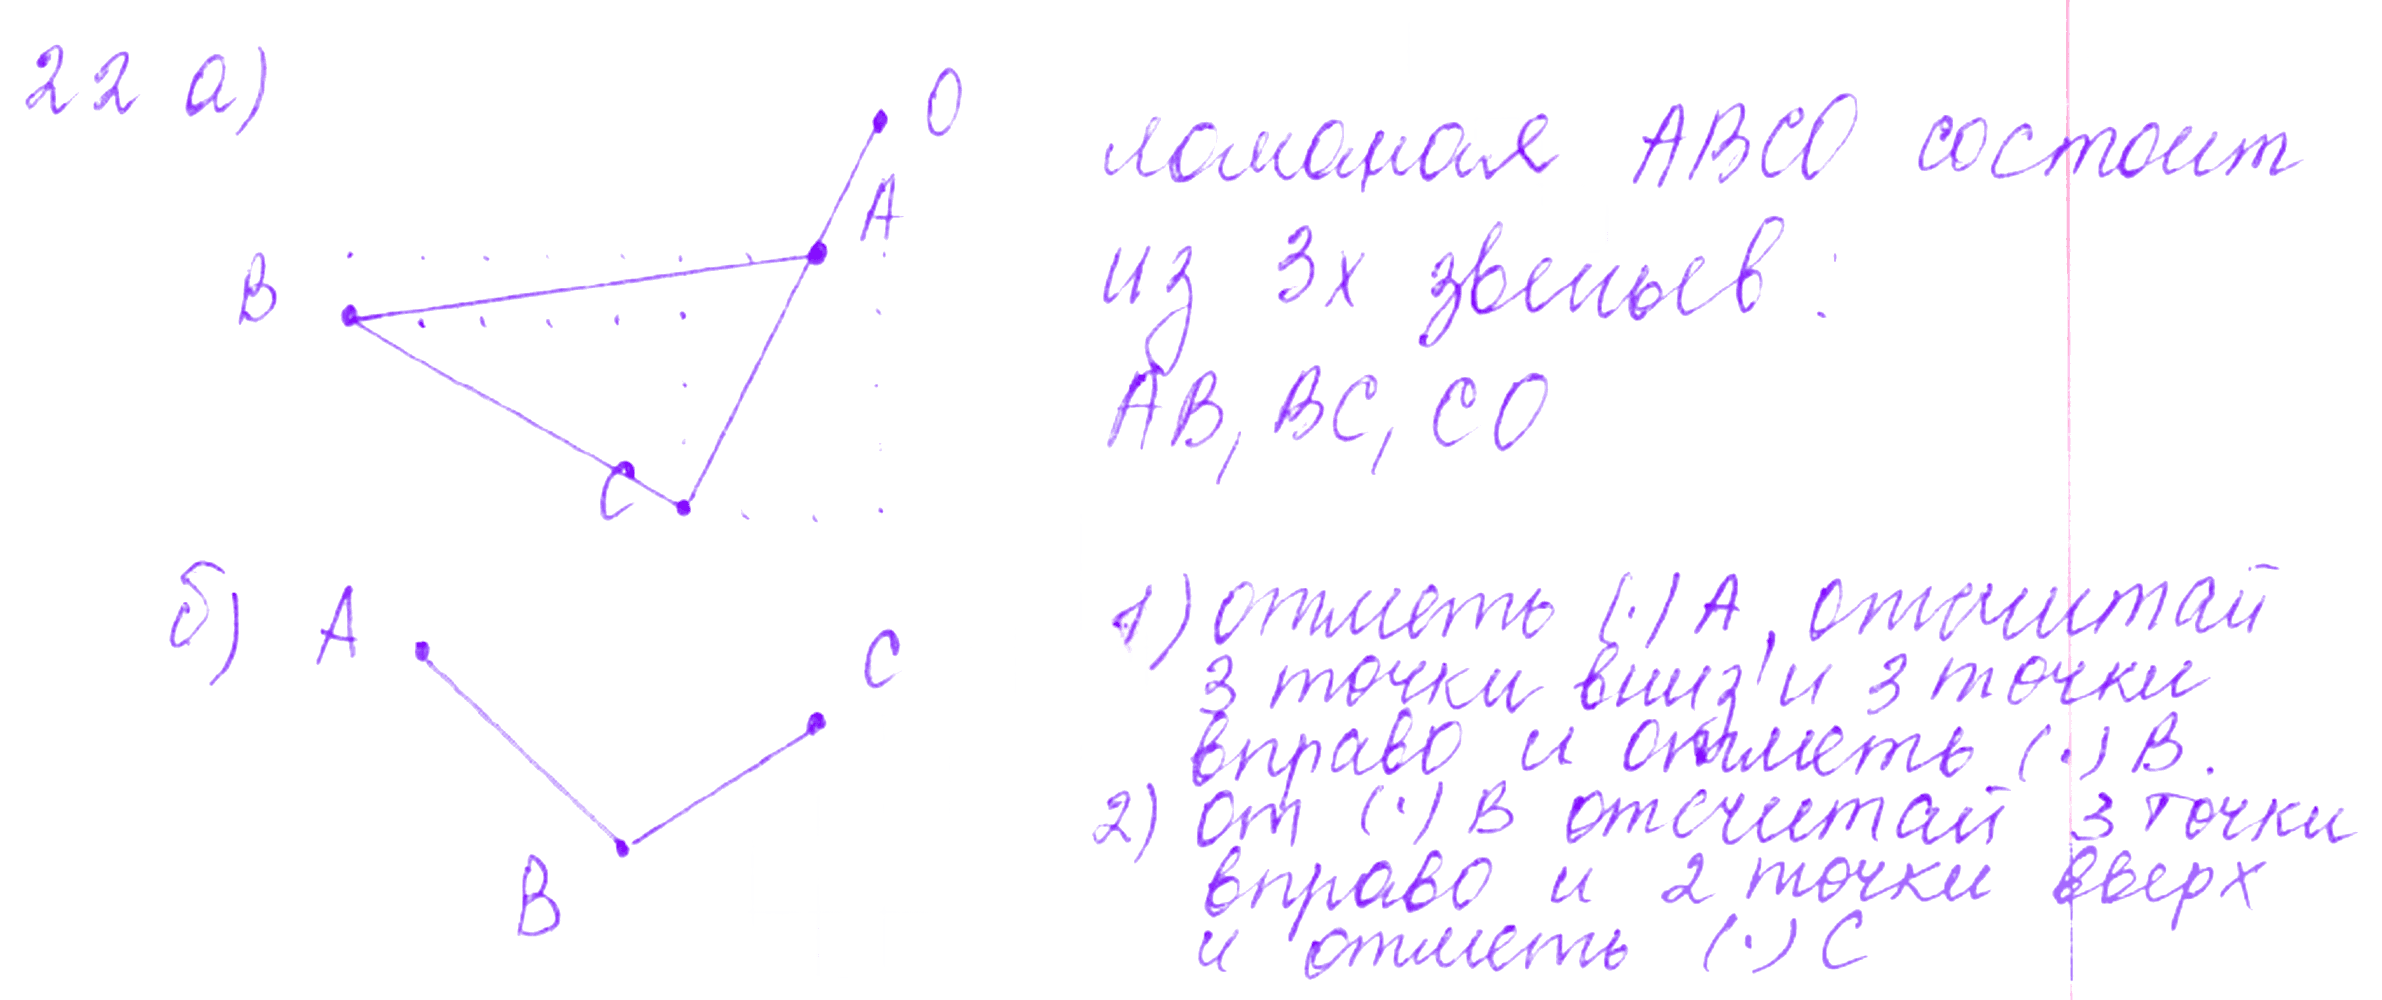 22 а)
O
A
B
C
ломаная ABCO состоит
из 3х звеньев:
AB, BC, CO
б)
A
C
B
1) отметь (·) A, отсчитай
3 точки вниз и 3 точки
вправо и отметь (·) B.
2) от (·) B отсчитай 3 точки
вправо и 2 точки вверх
и отметь (·) C